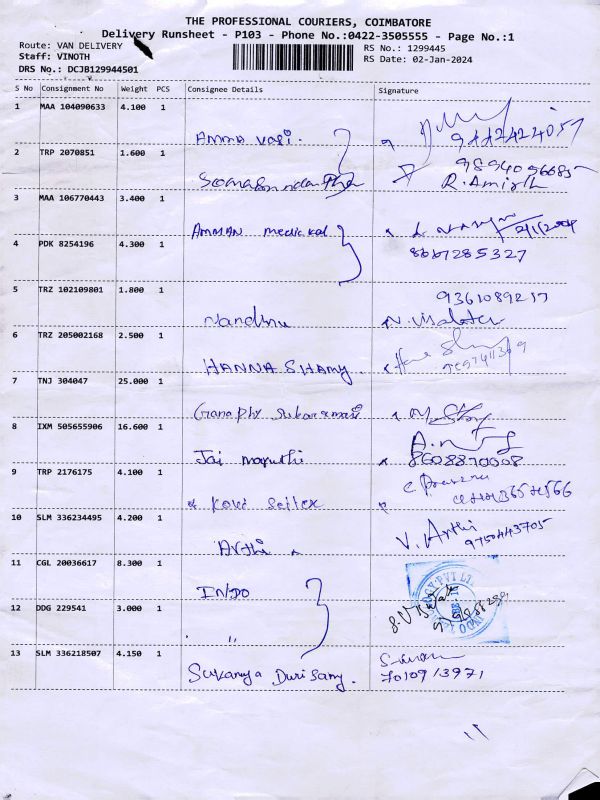 THE PROFESSIONAL COURIERS, COIMBATORE
Delivery Runsheet - P103 - Phone No.:0422-3505555 - Page No.:1
Route: VAN DELIVERY
RS No.: 1299445
Staff: VINOTH
RS Date: 02-Jan-2024
DRS No.: DCJB129944501
S No Consignment No Weight PCS Consignee Details Signature
1 MAA 104090633 4.100 1
AMMA vasi.
2 TRP 2070851 1.600 1
R. Amirth
3 MAA 106770443 3.400 1
AMMAN medickal 2/1/2024
4 PDK 8254196 4.300 1
8667285327
5 TRZ 102109801 1.800 1
9361089217
Nandhu
6 TRZ 205002168 2.500 1
HANNA SHAMY
7 TNJ 304047 25.000 1
8 IXM 505655906 16.600 1
Jai maruthi 8608870008
9 TRP 2176175 4.100 1
10 SLM 336234495 4.200 1
V. Arthi
Arthi 9750443705
11 CGL 20036617 8.300 1
INDO
12 DDG 229541 3.000 1
" "
13 SLM 336218507 4.150 1
Sukanya Durisamy. 7010913971